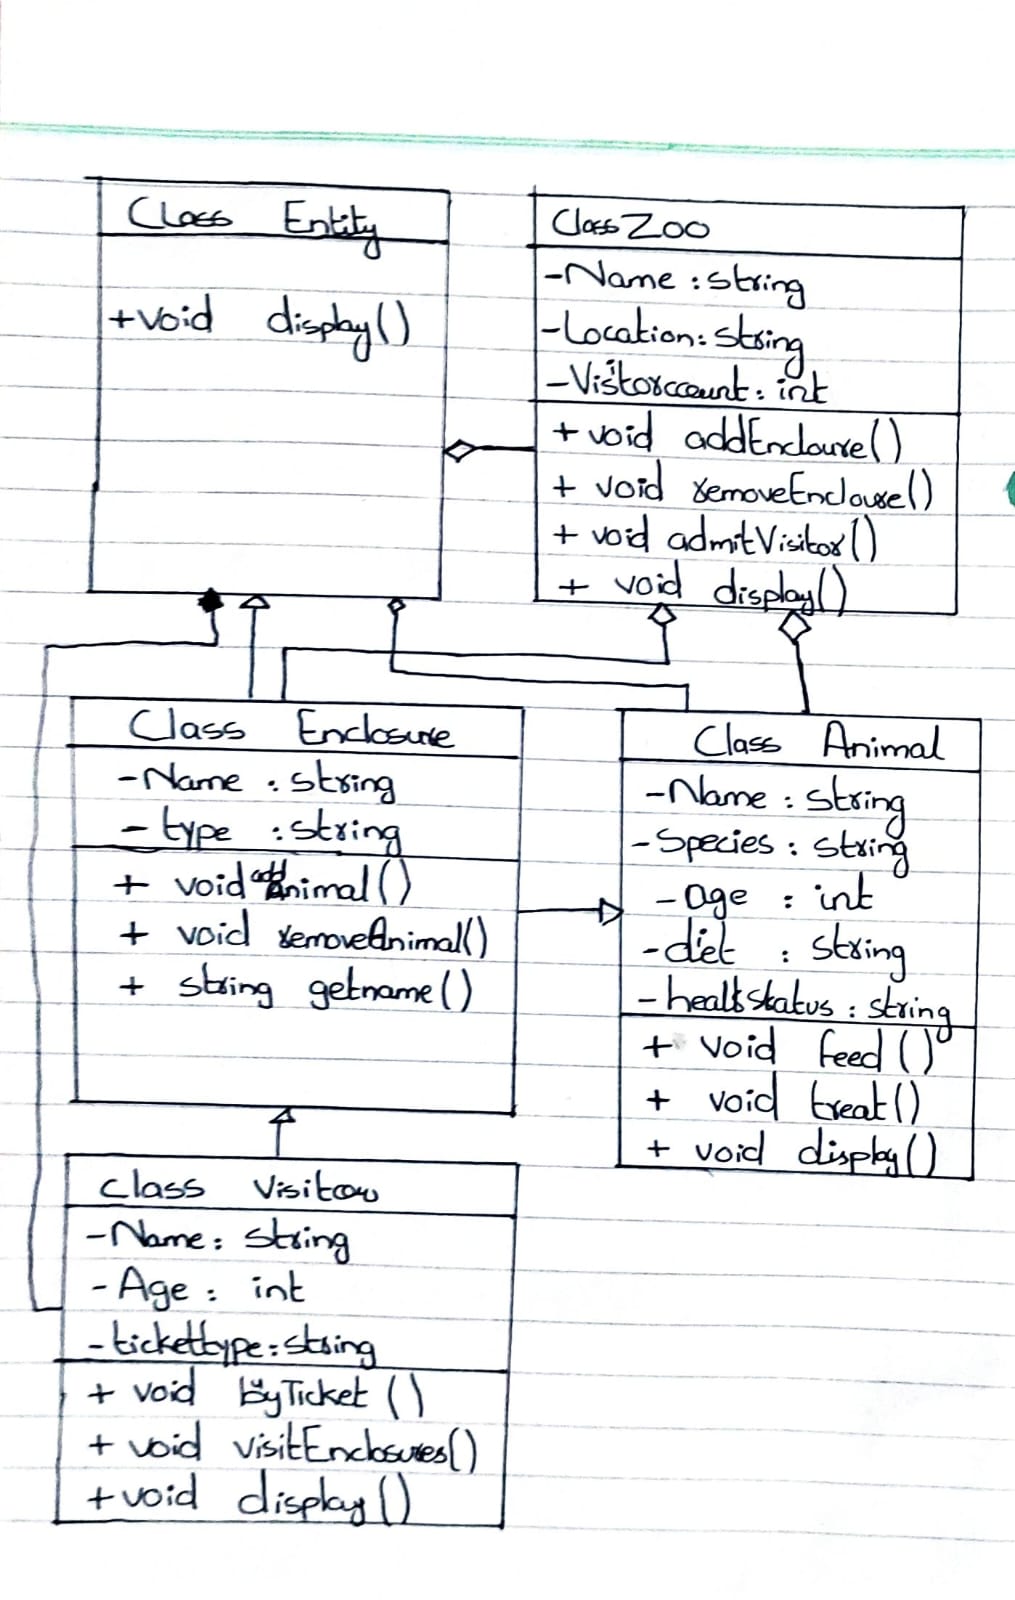 Class Entity
+void display()
Class Zoo
-Name : string
-Location: string
-Visitorccount: int
+ void addEncloure()
+ void removeEnclouse()
+ void admitVisitor()
+ void display()
Class Enclosure
-Name : string
- type : string
+ void addAnimal()
+ void removeAnimal()
+ string getname()
Class Animal
-Name : string
- Species : string
- age : int
-diet : string
- healtstatus : string
+ void feed()
+ void treat()
+ void display()
class Visitor
-Name: string
- Age : int
- tickettype: string
+ void buyTicket ()
+ void visitEnclosures()
+void display()